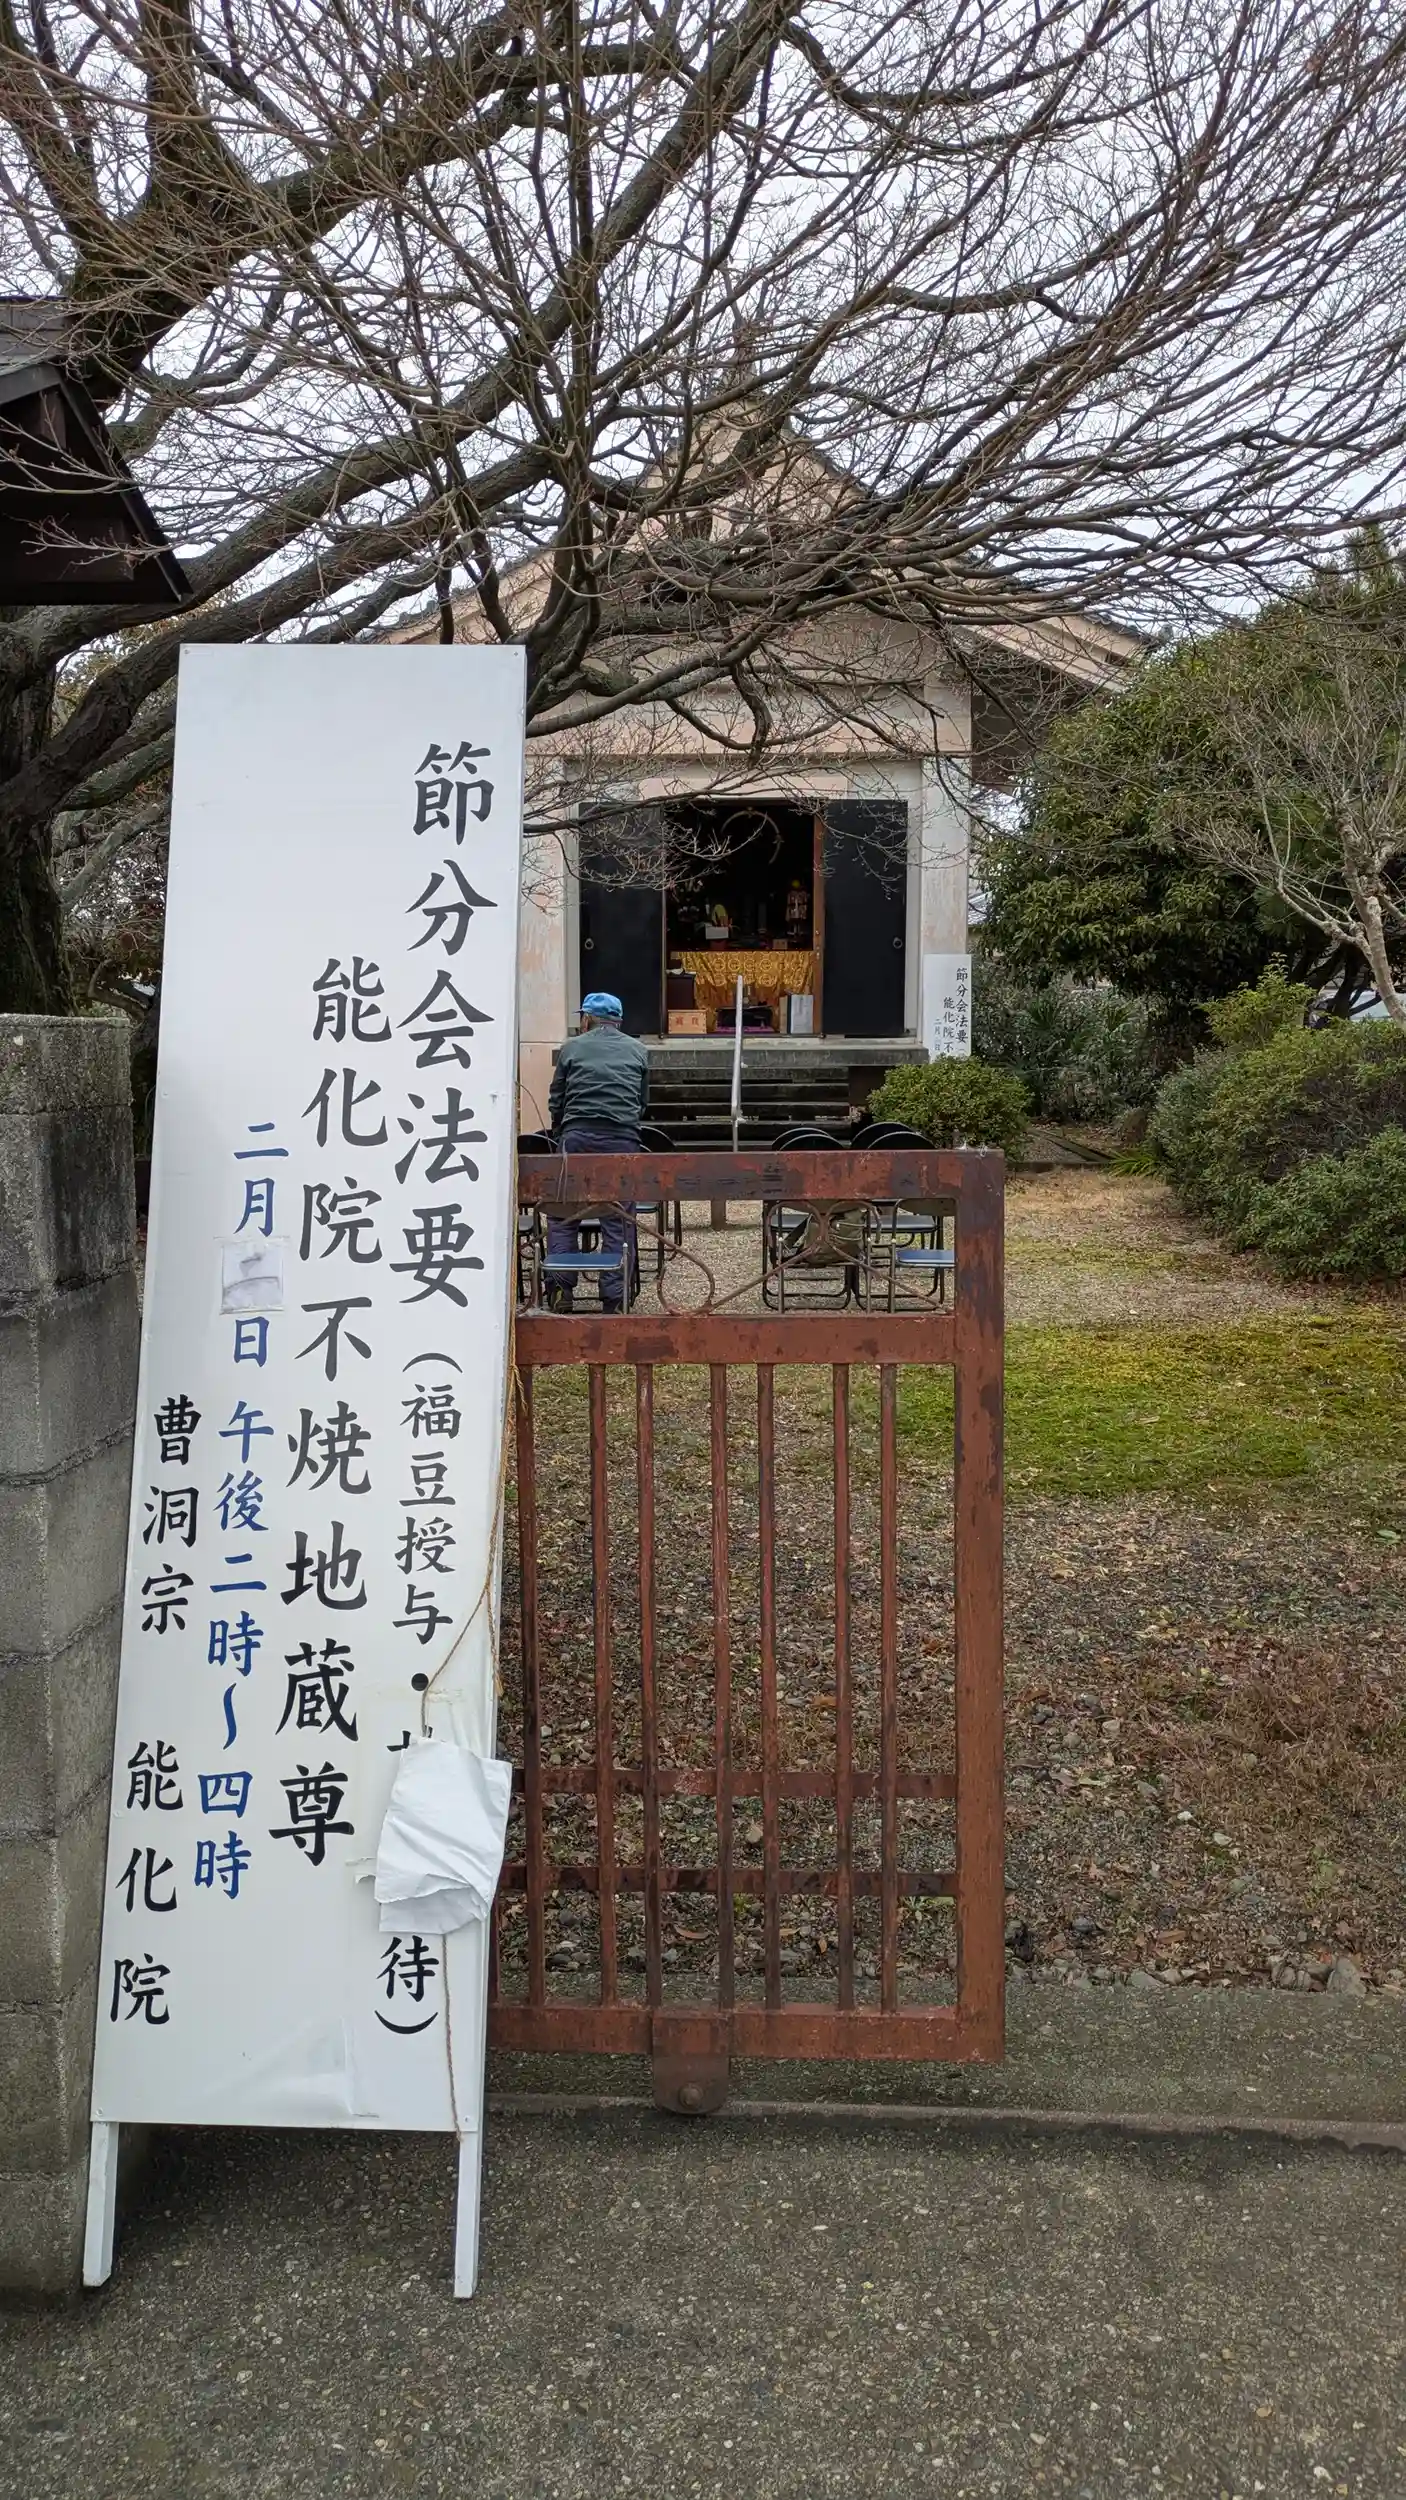 節分会法要（福豆授与・
待）
能化院不焼地蔵尊
二月二日 午後二時〜四時
曹洞宗 能化院
節分会法要（
能化院不
二月